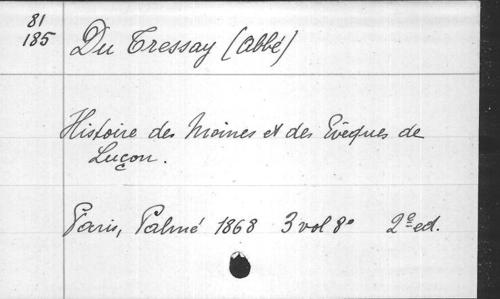 81
185
Du Tressay (Abbé)
Histoire des Moines et des Evêques de
Luçon.
Paris, Palmé 1868 3 vol 8° 2e ed.